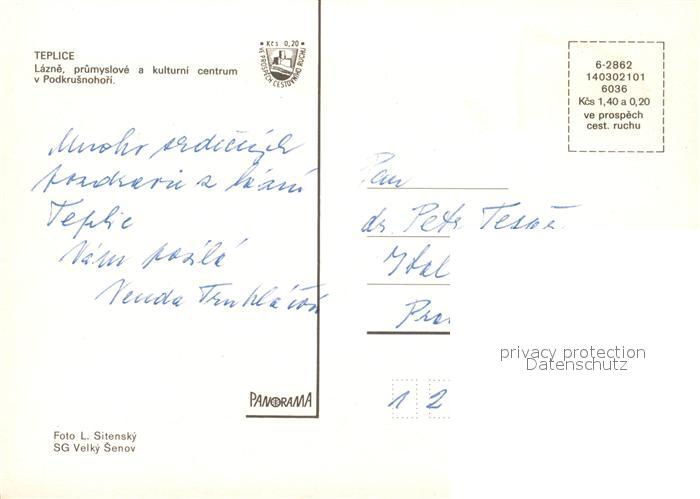 TEPLICE
Lázně, průmyslové a kulturní centrum
v Podkrušnohoří.
Kčs 0,20
VE PROSPĚCH CESTOVNÍHO RUCHU
6-2862
140302101
6036
Kčs 1,40 a 0,20
ve prospěch
cest. ruchu
Mnoho srdečných
pozdravů z lázní
Teplic
Vám posílá
Venda Truhlářová
Pan
dr. Petr
Ital
Pra
1 2
privacy protection
Datenschutz
PANORAMA
Foto L. Sitenský
SG Velký Šenov